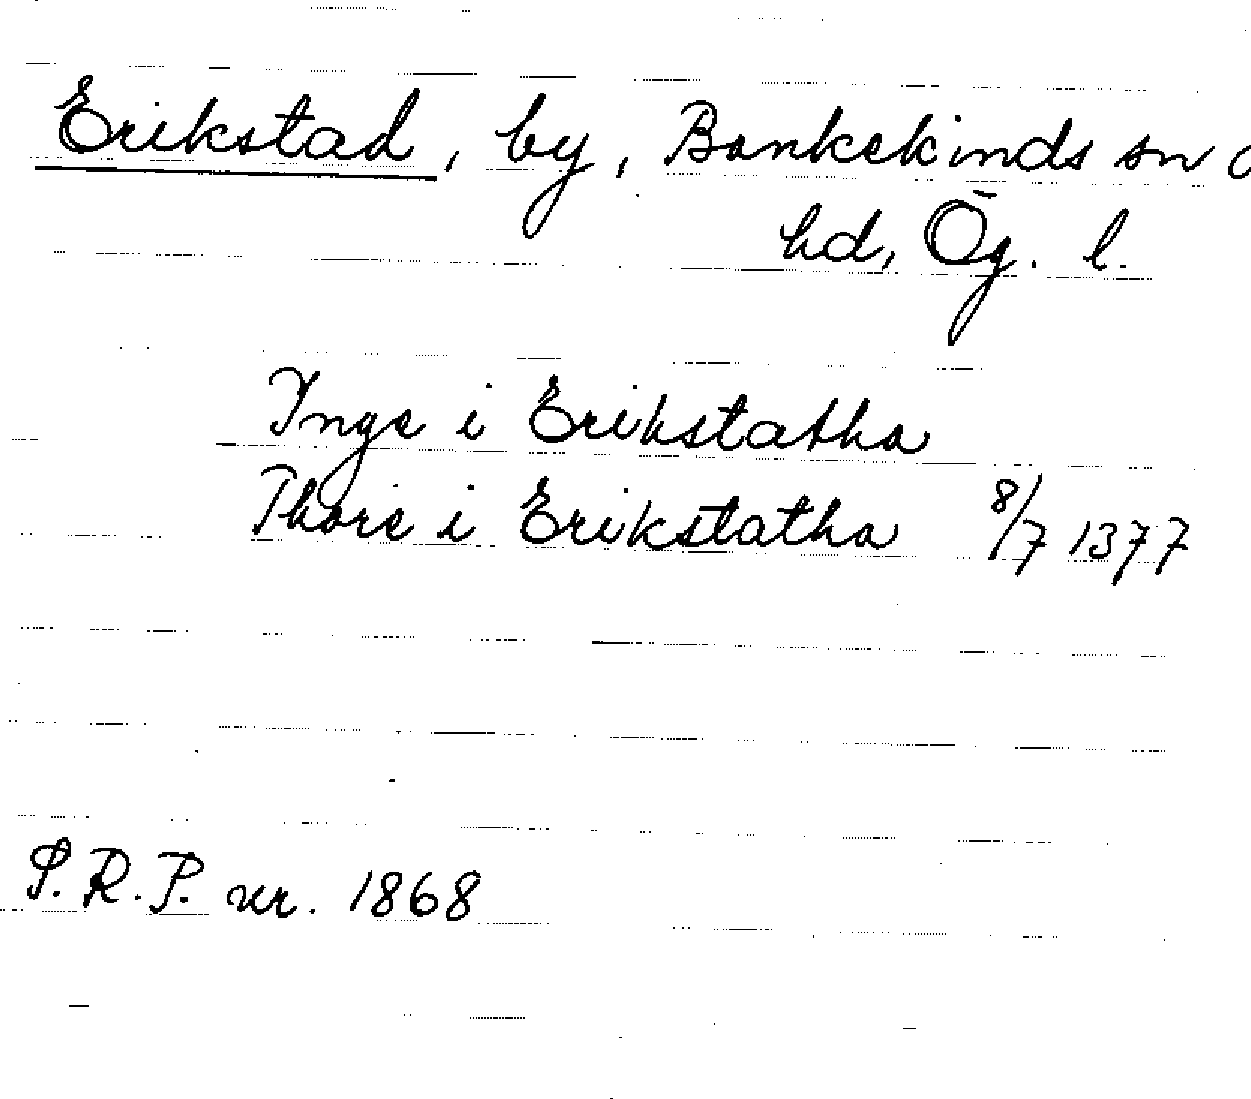 Erikstad, by, Bankekinds sn o
hd, Ög. l.
Inge i Erikstatha
Thore i Erikstatha 8/7 1377
S.R.P. nr. 1868